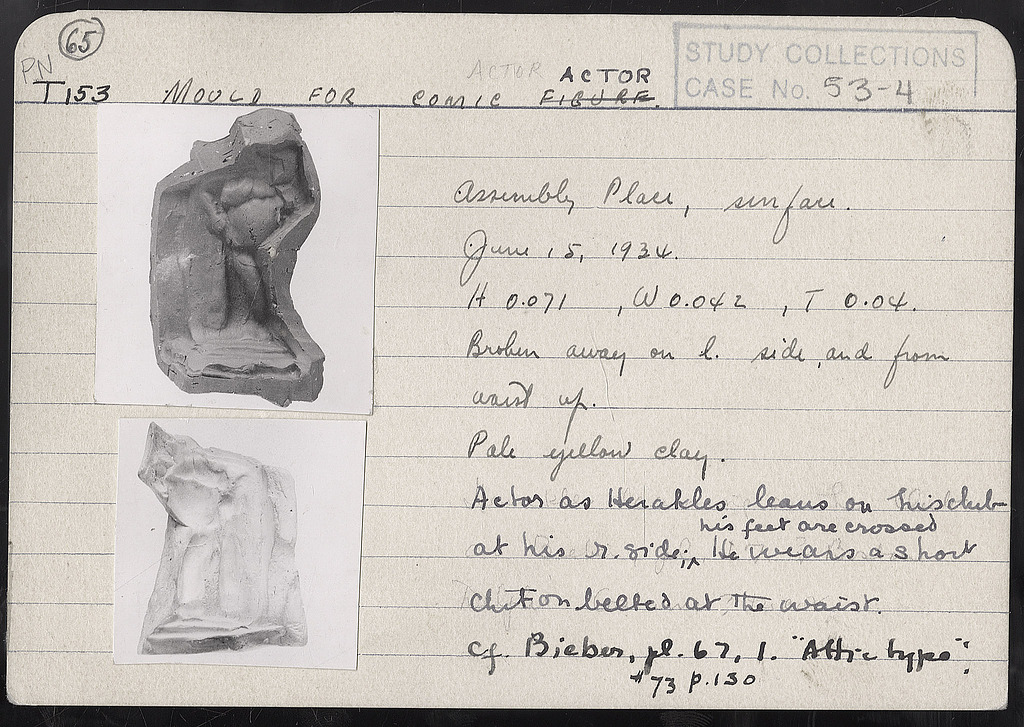 65
PN
T153 MOULD FOR COMIC FIGURE.
ACTOR ACTOR
STUDY COLLECTIONS
CASE No. 53-4
Assembly Place, surface.
June 15, 1934.
H 0.071 , W 0.042 , T 0.04.
Broken away on l. side, and from
waist up.
Pale yellow clay.
Actor as Herakles leans on his club
his feet are crossed
at his r. side; He wears a short
chiton belted at the waist.
Cf. Bieber, pl. 67, 1. "Attic type".
#73 p.130